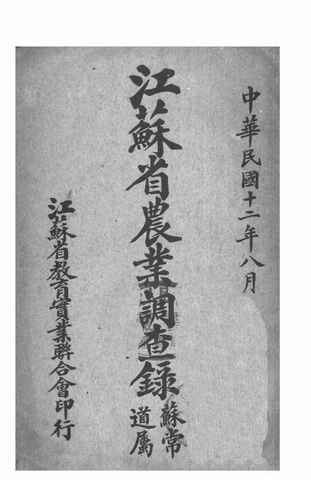 中華民國十二年八月
江蘇省農業調查錄
蘇常
道属
江蘇省教育實業聯合會印行